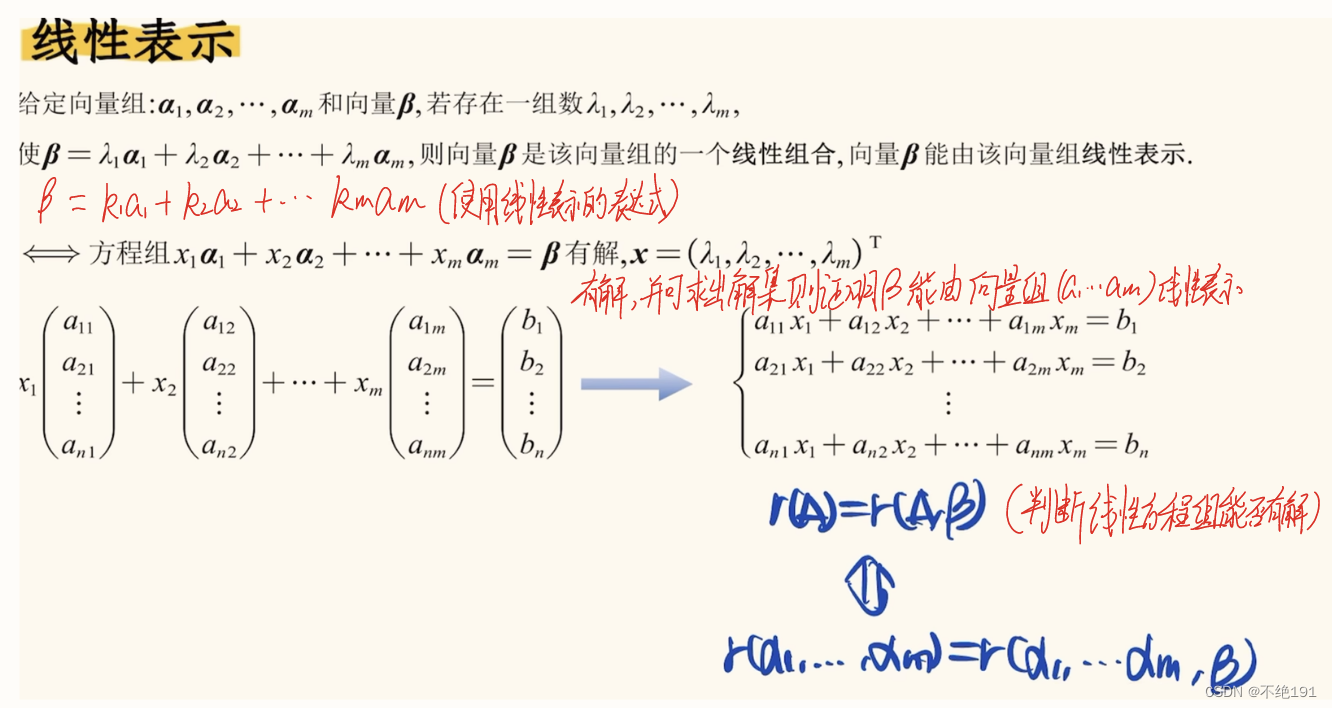 线性表示
给定向量组:α₁,α₂,⋯,αₘ和向量β,若存在一组数λ₁,λ₂,⋯,λₘ,
使β=λ₁α₁+λ₂α₂+⋯+λₘαₘ,则向量β是该向量组的一个线性组合,向量β能由该向量组线性表示.
β=k₁a₁+k₂a₂+⋯kₘaₘ(使用线性表示的表达式)
⟺方程组x₁α₁+x₂α₂+⋯+xₘαₘ=β有解,x=(λ₁,λ₂,⋯,λₘ)ᵀ
有解,并可求出解集则证明β能由向量组(a₁⋯aₘ)线性表示
x₁(a₁₁ a₂₁ ⋮ aₙ₁)+x₂(a₁₂ a₂₂ ⋮ aₙ₂)+⋯+xₘ(a₁ₘ a₂ₘ ⋮ aₙₘ)=(b₁ b₂ ⋮ bₙ)
a₁₁x₁+a₁₂x₂+⋯+a₁ₘxₘ=b₁
a₂₁x₁+a₂₂x₂+⋯+a₂ₘxₘ=b₂
⋮
aₙ₁x₁+aₙ₂x₂+⋯+aₙₘxₘ=bₙ
r(A)=r(A,β)(判断线性方程组能否有解)
⇕
r(α₁,⋯,αₘ)=r(α₁,⋯αₘ,β)
CSDN @不绝191